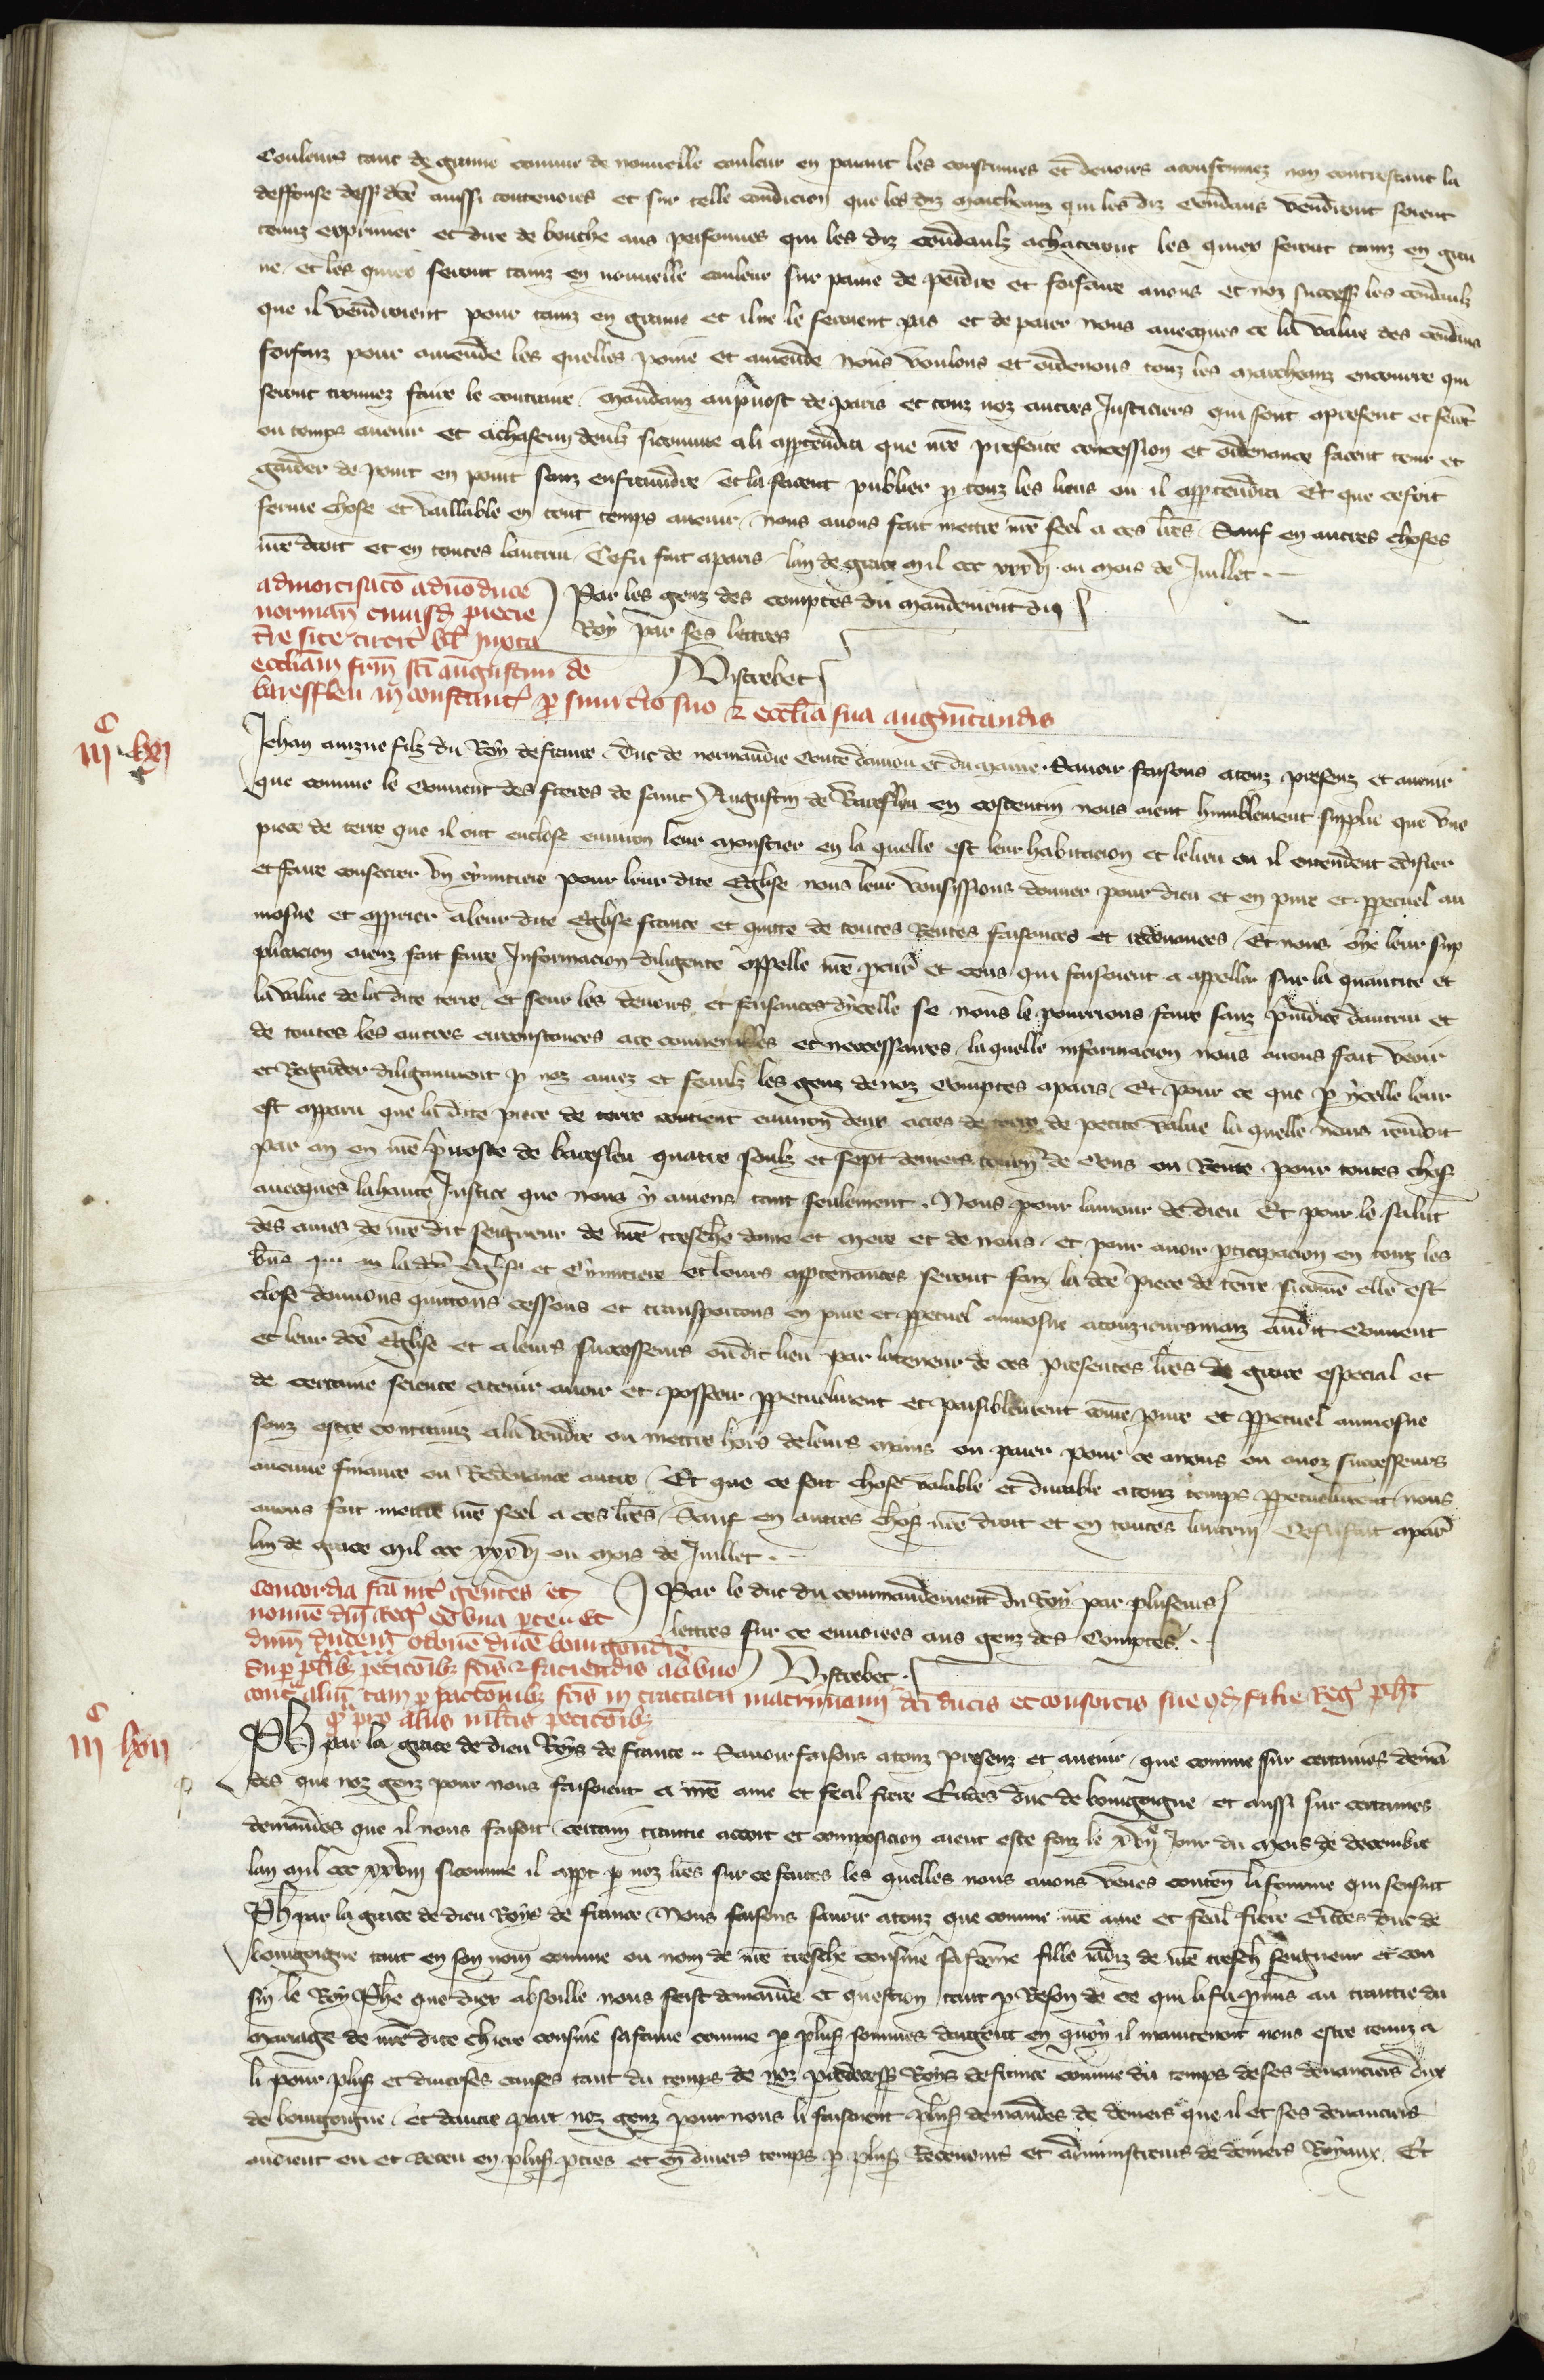 Couleurs tant de graine comme de nouuelle couleur en paiant les coustumes et deuoirs acoustumez non contrestant la
deffense dess dce aussi contenoirs et sur telle condicion que les diz marcheanz qui les diz cendaus vendront seront
tenuz exprimer et dire de bouche aus personnes qui les diz cendaulz achateront les quiex seront tainz en grai
ne et les quiex seront tainz en nouuelle couleur sur paine de perdre et forfaire a nous et noz success les cendaulz
que il vendroient pour tainz en graine et il ne le seroient pas et de paier nous auecques ce la value des cendaus
forfaiz pour amende les quelles poine et amende nous voulons et ordenons touz les marcheanz encourre qui
seront trouuez faire le contraire mandanz au pruost de paris et touz noz autres Justiciers qui sont a present et seront
ou temps auenir et a chascun deulz sicomme a li appartendra que nre presente concession et ordenance facent tenir et
garder de point en point sanz enfraindre et la facent publier p touz les lieus ou il appartendra Et que ce soit
ferme chose et vaillable en tout temps auenir nous auons fait mettre nre seel a ces lres Sauf en autres choses
nre droit et en toutes lautrui Ce fu fait a paris lan de grace mil ccc xxxvij ou mois de Juillet
admortisaco ad uo duce
norman cuiusd piecie
tre site circit bl iuxta
eccliam frm sci augustini de
bareffleu in constant p simitio suo 2 ecclia sua augmtandis
Par les genz des comptes du mandement du
Roy par ses lettres
Vistrebec
iijc lxvj
Jehan ainzne filz du Roy de france Duc de normandie Conte daniou et du maine Sauoir faisons a touz presenz et auenir
que comme le Couuent des freres de saint Augustin de Barefleu en costentin nous aient humblement supplie que vne
piece de terre que il ont enclose enuiron leur moustier en la quelle est leur habitacion et le lieu ou il entendent edifier
et faire consacrer vn cymitiere pour leur dite Eglise nous leur vousissions donner pour dieu et en pure et ppetuel au
mosne et apprier a leur dite Eglise franche et quitte de toutes Rentes faisances et redeuances Et nous oye leur sup
plicacion auenz fait faire Informacion diligente appelle nre pcur et ceus qui faisoient a appeller sur la quantite et
la value de la dite terre et seur les deuoirs et faisances dycelle se nous le pourrions faire sanz preiudice dautrui et
de toutes les autres circonstances a ce conuenables et neccessaires la quelle informacion nous auons fait veoir
et Regarder diligaument p noz amez et feaulz les genz de noz Comptes a paris Et pour ce que p ycelle leur
est apparu que la dite piece de terre contient enuiron deux acres de terre de petite value la quelle nous rendoit
par an en nre preuoste de barefleu quatre soulz et sept deniers tourn de Cens ou Rente pour toutes chos
auecques la haute Justice que nous y auiens tant seulement Nous pour lamour de dieu Et pour le salut
des ames de nre dit seigneur de nre treschre dame et mere et de nous et pour auoir pticipacion en touz les
biens qui en la dce Eglise et Cymitiere et leurs apptenances seront faiz la dce piece de terre sicomme elle est
close donnons quittons cessons et transportons en pure et ppetuel aumosne a touzioursmais audit Couuent
et leur dce Eglise et a leurs successeurs oudit lieu par la teneur de ces presentes lres de grace especial et
de certaine science a tenir auoir et possoir ppetuelment et paisiblement come pure et ppetuel aumosne
sanz estre contrainz a la vendre ou mettre hors de leurs mains ou paier pour ce a nous ou a noz successeurs
aucune finance ou Redeuance autre Et que ce soit chose valable et durable a touz temps ppetuelment nous
auons fait mettre nre seel a ces lres Sauf en autres chos nre droit et en toutes lautrui Ce fu fait a par
lan de grace mil ccc xxxvij ou mois de Juillet
Concordia fca int gentes et
nomine dni Reg ex vna parte Et
dnm ducem odonem ducem bourgondie
Sup plibz peticoibz fcis 2 faciendis ab vno
cont alium tam p pactoibz fcis in tractatu matrimonii dci ducis et consortis sue qd filie Reg phi
q pro aliis mltis peticoibz
Par le duc du commandement du Roy par pluseurs
lettres sur ce enuoiees aus genz des Comptes
Vistrebec
iijc lxvij
Ph par la grace de dieu Roys de france Sauoir faisons a touz presenz et auenir que comme sur certaines deman
des que noz genz pour nous faisoient a nre ame et feal frere Eudes duc de bourgoigne et aussi sur certaines
demandes que il nous faisoit certain traittie acort et composicion aient este faiz le xviije Jour du mois de decembre
lan mil ccc xxviij sicomme il appt p noz lres sur ce faites les quelles nous auons veues conten la fourme qui sensuit
Ph par la grace de dieu Roys de france Nous faisons sauoir a touz que comme nre ame et feal frere Eudes duc de
bourgoigne tant en son nom comme ou nom de nre treschre cousine sa feme fille iadiz de nre tresch seigneur et cou
sin le Roy Phe que diex absoille nous feist demande et question tant p Reson de ce qui li fu promis au traittie du
mariage de nre dite chiere cousine sa fame comme p plus sommes dargent en quoy il maintenoit nous estre tenuz a
li pour plus et diuerses causes tant du temps de noz predecess Roys de france comme du temps de ses deuanciers dux
de bourgoigne et dautre part noz genz pour nous li faisoient plus demandes de deniers que il et ses deuanciers
auoient eu et Receu en plus pties et en diuers temps p plus Receueurs et administreurs de deniers Royaux Et